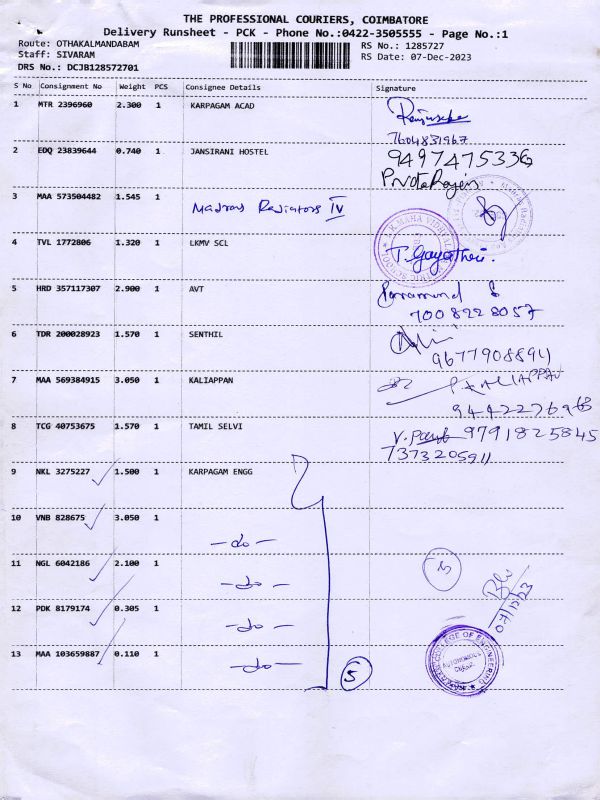 THE PROFESSIONAL COURIERS, COIMBATORE
Delivery Runsheet - PCK - Phone No.:0422-3505555 - Page No.:1
Route: OTHAKALMANDABAM
RS No.: 1285727
Staff: SIVARAM
RS Date: 07-Dec-2023
DRS No.: DCJB128572701
S No Consignment No Weight PCS Consignee Details Signature
1 MTR 2396960 2.300 1 KARPAGAM ACAD
7604831967
2 EDQ 23839644 0.740 1 JANSIRANI HOSTEL 9497475336
3 MAA 573504482 1.545 1 Madras Radiators IV
4 TVL 1772806 1.320 1 LKMV SCL T. Gayathri.
5 HRD 357117307 2.900 1 AVT
7008228057
6 TDR 200028923 1.570 1 SENTHIL
9677908891
7 MAA 569384915 3.050 1 KALIAPPAN P.KALIAPPAN
9442276968
8 TCG 40753675 1.570 1 TAMIL SELVI 9791825845
7373205911
9 NKL 3275227 1.500 1 KARPAGAM ENGG
10 VNB 828675 3.050 1
-do-
11 NGL 6042186 2.100 1
-do-
12 PDK 8179174 0.305 1
-do-
13 MAA 103659887 0.110 1
-do-
5
COLLEGE OF ENGINEERING
AUTONOMOUS